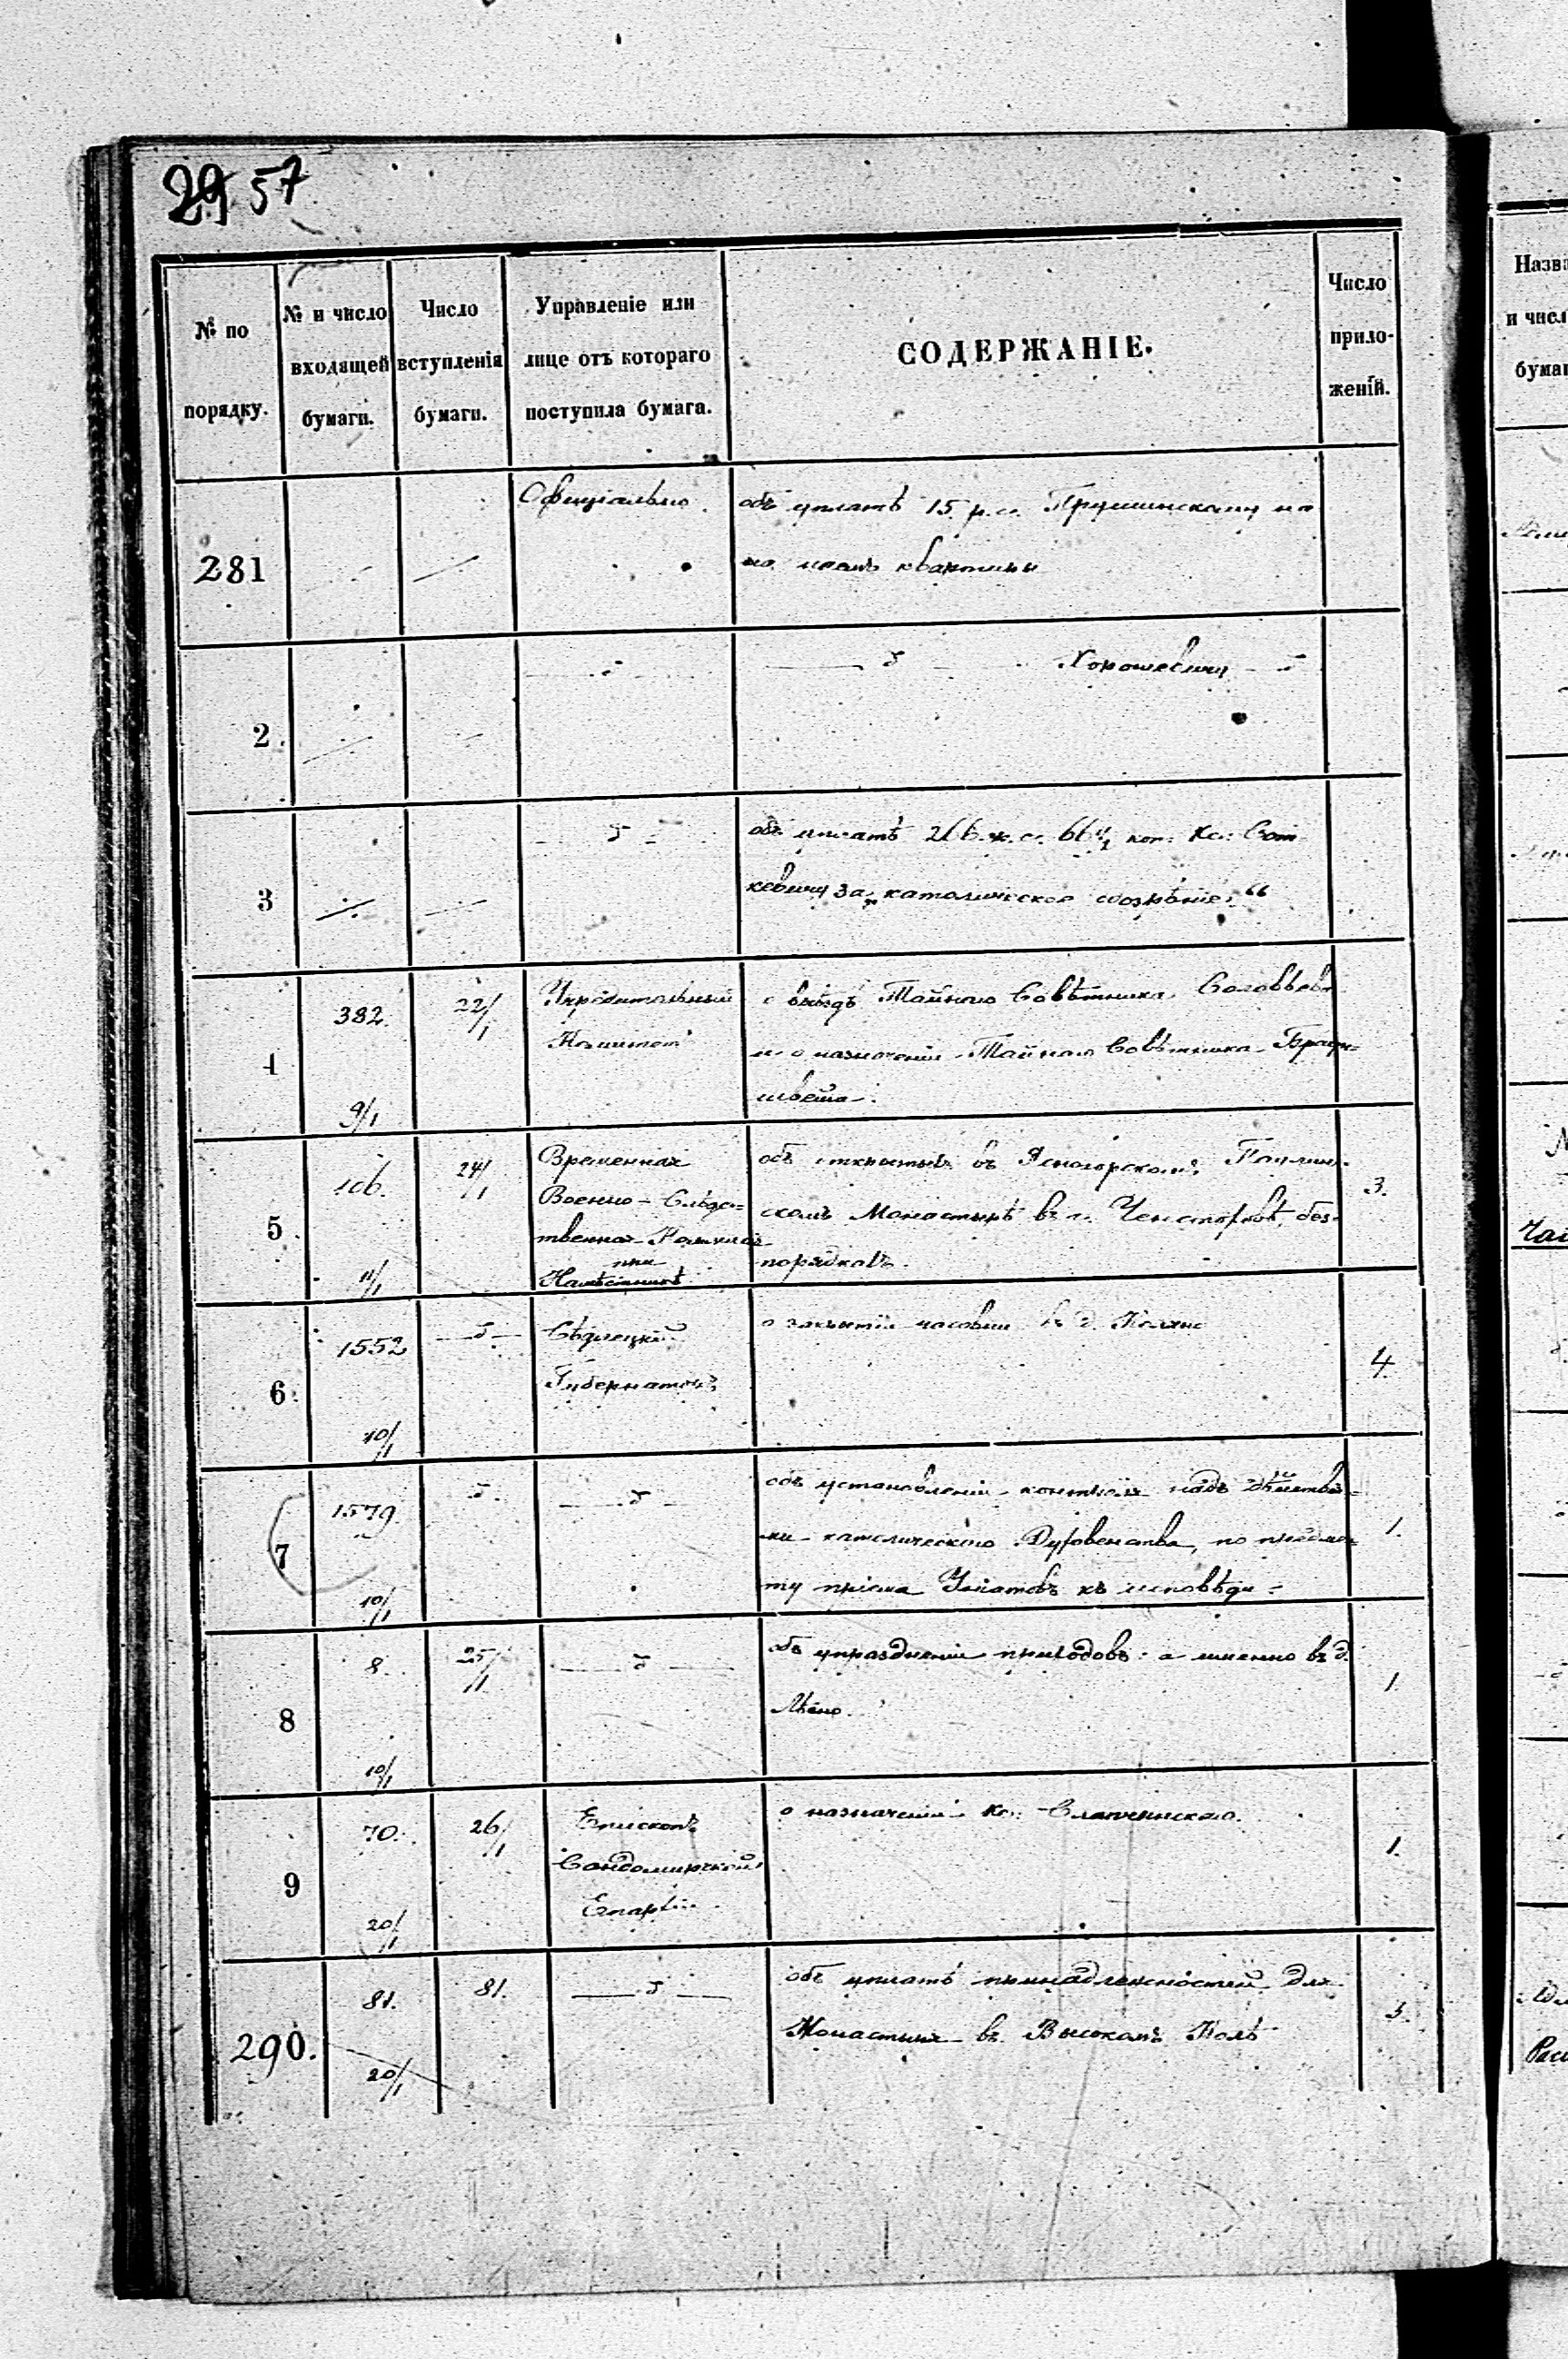 57
№ по порядку.
№ и число входящей бумаги.
Число вступленія бумаги.
Управленіе или лице отъ котораго поступила бумага.
СОДЕРЖАНІЕ.
Число приложеній.
281
Офиціально.
объ уплатѣ 15 р. с. Прушинскому на
квартиры
2
Хорошевичу
3
объ уплатѣ коп. Кс:
кевичу за „католическое
4
382.
9/1
22/1
Учредительный
Комитетъ
о выѣздѣ Тайного Совѣтника Соловьева
и о назначеніи Тайного Совѣтника Браун-
швейга.
5
106.
11/1
24/1
Временная
Военно-Слѣдс-
твенная Коммисія
при
Намѣстникѣ
объ открытыхъ въ Ясногорскомъ Паулин-
скомъ Монастырѣ въ г. Ченстоховѣ без-
порядковъ.
3.
6
1552
10/1
Сѣдлецкій
Губернаторъ
о закрытіи часовни въ д.
4.
7
1579.
10/1
объ установленіи контроля надъ дѣйствія-
ми католическаго Духовенства, по предме-
ту пріема Уніатовъ къ исповѣди
1.
8
8.
10/1
25/1
объ упраздненіи приходовъ: а именно въ д.
1.
9
70.
20/1
26/1
Епископъ
Сандомирской
Епархіи
о назначеніи Кс:
1.
290.
81.
20/1
81.
объ уплатѣ принадлежностей для
Монастыря въ Высокомъ Полѣ
Назва
и числ
бумаг